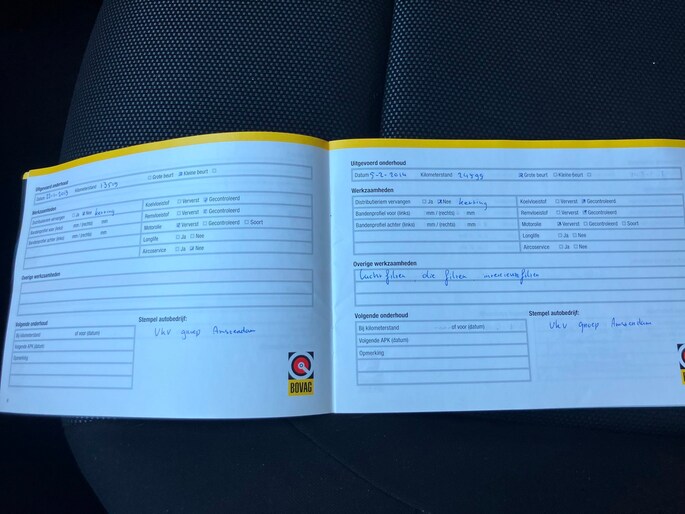 Uitgevoerd onderhoud
Datum Kilometerstand ☐ Grote beurt ☒ Kleine beurt ☐
Werkzaamheden
Distributieriem vervangen ☐ Ja ☒ Nee ketting
Bandenprofiel voor (links) mm / (rechts) mm
Bandenprofiel achter (links) mm / (rechts) mm
Koelvloeistof ☐ Ververst ☑ Gecontroleerd
Remvloeistof ☐ Ververst ☑ Gecontroleerd
Motorolie ☑ Ververst ☐ Gecontroleerd ☐ Soort
Longlife ☐ Ja ☐ Nee
Aircoservice ☐ Ja ☑ Nee
Overige werkzaamheden
Volgende onderhoud
Bij kilometerstand of voor (datum)
Volgende APK (datum)
Opmerking
Stempel autobedrijf:
VKV groep Amsterdam
BOVAG
Uitgevoerd onderhoud
Datum Kilometerstand 24599 ☒ Grote beurt ☐ Kleine beurt ☐
Werkzaamheden
Distributieriem vervangen ☐ Ja ☒ Nee ketting
Bandenprofiel voor (links) mm / (rechts) mm
Bandenprofiel achter (links) mm / (rechts) mm
Koelvloeistof ☐ Ververst ☑ Gecontroleerd
Remvloeistof ☐ Ververst ☑ Gecontroleerd
Motorolie ☑ Ververst ☐ Gecontroleerd ☐ Soort
Longlife ☐ Ja ☐ Nee
Aircoservice ☐ Ja ☐ Nee
Overige werkzaamheden
Luchtfilter, olie filter interieurfilter
Volgende onderhoud
Bij kilometerstand of voor (datum)
Volgende APK (datum)
Opmerking
Stempel autobedrijf:
VKV groep Amsterdam